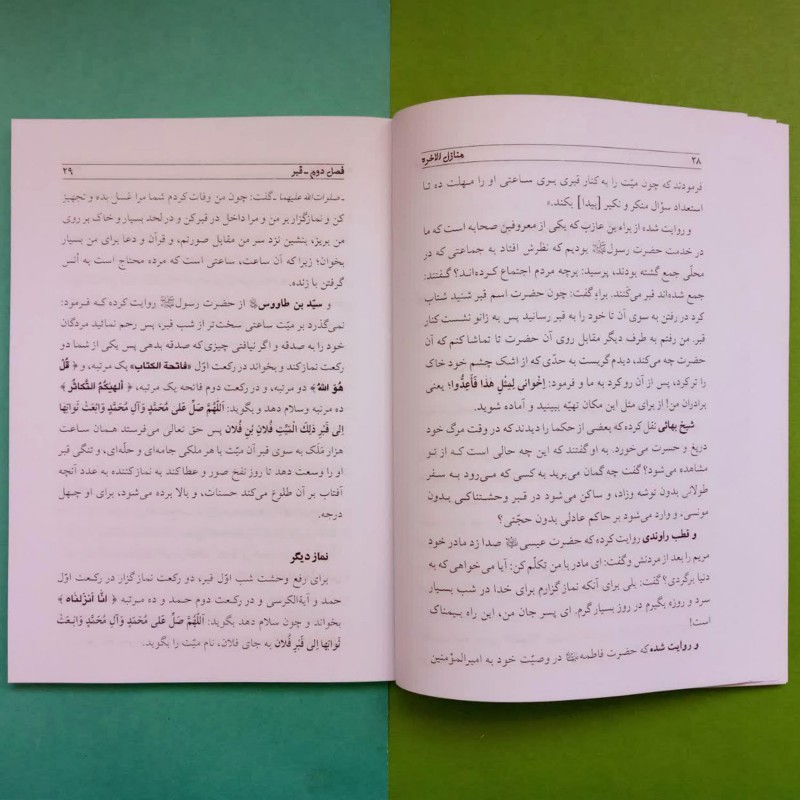 ۲۸ منازل الاخره
فرمودند که چون میّت را به کنار قبری بری ساعتی او را مهلت ده تا
استعداد سؤال منکر و نکیر [پیدا] بکند.»
و روایت شده از براء بن عازب که یکی از معروفین صحابه است که ما
در خدمت حضرت رسول ﷺ بودیم که نظرش افتاد به جماعتی که در
محلّی جمع گشته بودند، پرسید: برچه مردم اجتماع کرده‌اند؟ گفتند:
جمع شده‌اند قبر می‌کَنند. براء گفت: چون حضرت اسم قبر شنید شتاب
کرد در رفتن به سوی آن تا خود را به قبر رسانید پس به زانو نشست کنار
قبر. من رفتم به طرف دیگر مقابل روی آن حضرت تا تماشا کنم که آن
حضرت چه می‌کند، دیدم گریست به حدّی که از اشک چشم خود خاک
را ترکرد، پس از آن روکرد به ما و فرمود: اِخْوانی لِمِثْلِ هٰذَا فَأَعِدُّوا؛ یعنی
برادران من! از برای مثل این مکان تهیّه ببینید و آماده شوید.
شیخ بهائی نقل کرده که بعضی از حکما را دیدند که در وقت مرگ خود
دریغ و حسرت می‌خورد. به او گفتند که این چه حالی است کـه از تـو
مشاهده می‌شود؟ گفت چه گمان می‌برید به کسی که مـی‌رود بـه سـفر
طولانی بدون توشه وزاد، و ساکن می‌شود در قبر وحشتناکـی بـدون
مونسی، و وارد می‌شود بر حاکم عادلی بدون حجّتی؟
و قطب راوندی روایت کرده که حضرت عیسی صدا زد مادر خود
مریم را بعد از مردنش وگفت: ای مادر با من تکلّم کن: آیا می‌خواهی که به
دنیا برگردی؟ گفت: بلی برای آنکه نمازگزارم برای خدا در شب بسیار
سرد و روزه بگیرم در روز بسیارگرم. ای پسر جان من، این راه بیمناک
است!
و روایت شده که حضرت فاطمه در وصیّت خود به امیرالمؤمنین
فصل دوم - قبر ۲۹
ـ صلوات الله علیهما ـ گفت: چون من وفات کردم شما مرا غسل بده و تجهیز
کن و نمازگزار بر من و مرا داخل در قبر کن و در لحد بسپار و خاک بر روی
من بریز، بنشین نزد سر من مقابل صورتم، و قرآن و دعا برای من بسیار
بخوان؛ زیرا که آن ساعت، ساعتی است که مرده محتاج است به اُنس
گرفتن با زنده.
و سیّد بن طاووس از حضرت رسول ﷺ روایت کرده کـه فرمود:
نمی‌گذرد بر میّت ساعتی سخت‌تر از شب قبر، پس رحم نمائید مردگان
خود را به صدقه و اگر نیافتی چیزی که صدقه بدهی پس یکی از شما دو
رکعت نمازکند و بخواند در رکعت اوّل «فاتحة الکتاب» یک مرتبه، و ﴿ قُلْ
هُوَ اللهُ ﴾ دو مرتبه، و در رکعت دوم فاتحه یک مرتبه، ﴿ اَلهٰیکُمُ التَّکاثُر ﴾
ده مرتبه وسلام دهد و بگوید: اَللّٰهُمَّ صَلِّ عَلی مُحَمَّدٍ وَآلِ مُحَمَّدٍ وَابْعَثْ ثَوابَهَا
اِلی قَبْرِ ذٰلِکَ الْمَیِّتِ فُلانِ بْنِ فُلان پس حق تعالی می‌فرستد همـان ساعت
هزار مَلَک به سوی قبر آن میّت با هر ملکی جامه‌ای و حلّه‌ای، و تنگی قبر
او را وسعت دهد تا روز نفخ صور و عطاکند به نمازکننده به عدد آنچه
آفتاب بر آن طلوع می‌کند حسنات، و بالا برده می‌شود، برای او چـهل
درجه.
نماز دیگر
برای رفع وحشت شب اوّل قبر، دو رکعت نمازگزار در رکـعت اوّل
حمد و آیةالکرسی و در رکعت دوم حمد و ده مـرتبه ﴿ انّا اَنزَلناه ﴾
بخواند و چون سلام دهد بگوید: اَللّٰهُمَّ صَلِّ عَلی مُحَمَّدٍ وَآلِ مُحَمَّدٍ وَابْعَثْ
ثَوابَهَا اِلی قَبْرِ فُلان به جای فلان، نام میّت را بگوید.